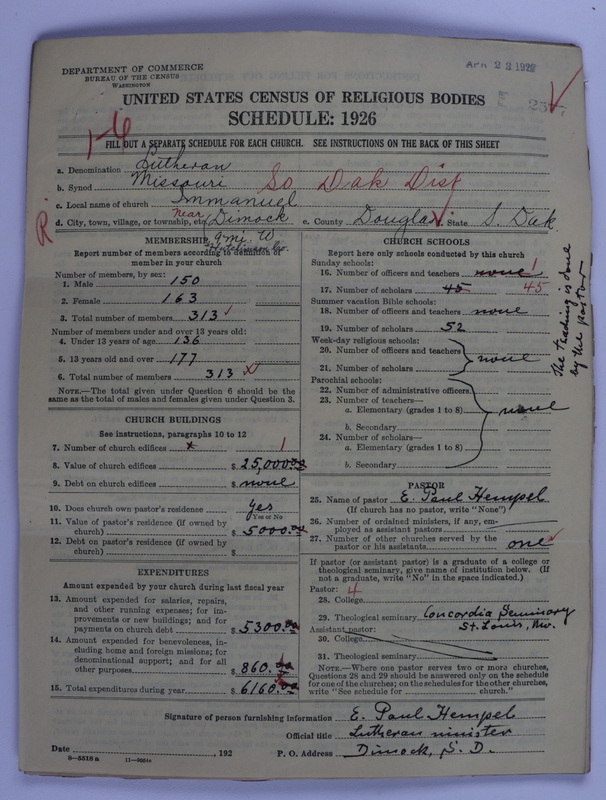 DEPARTMENT OF COMMERCE
BUREAU OF THE CENSUS
WASHINGTON
APR 23 192
UNITED STATES CENSUS OF RELIGIOUS BODIES
SCHEDULE: 1926
1-6
FILL OUT A SEPARATE SCHEDULE FOR EACH CHURCH. SEE INSTRUCTIONS ON THE BACK OF THIS SHEET
a. Denomination Lutheran
b. Synod Missouri So Dak Dist
c. Local name of church Immanuel
d. City, town, village, or township, etc. Near Dimock e. County Douglas f. State S. Dak.
R.
MEMBERSHIP 9 mi. W
Report number of members according to definition of member in your church
Number of members, by sex:
1. Male 150
2. Female 163
3. Total number of members 313
Number of members under and over 13 years old:
4. Under 13 years of age 136
5. 13 years old and over 177
6. Total number of members 313
NOTE.—The total given under Question 6 should be the
same as the total of males and females given under Question 3.
CHURCH BUILDINGS
See instructions, paragraphs 10 to 12
7. Number of church edifices 1
8. Value of church edifices $ 25,000.00
9. Debt on church edifices $ none
10. Does church own pastor's residence? yes
Yes or No
11. Value of pastor's residence (if owned by
church) $ 5000.00
12. Debt on pastor's residence (if owned by
church) $
EXPENDITURES
Amount expended by your church during last fiscal year
13. Amount expended for salaries, repairs,
and other running expenses; for im-
provements or new buildings; and for
payments on church debt $ 5300.00
14. Amount expended for benevolences, in-
cluding home and foreign missions; for
denominational support; and for all
other purposes $ 860.00
15. Total expenditures during year $ 6160.00
CHURCH SCHOOLS
Report here only schools conducted by this church
Sunday schools:
16. Number of officers and teachers none 1
17. Number of scholars 45 45
Summer vacation Bible schools:
18. Number of officers and teachers none
19. Number of scholars 52
Week-day religious schools:
20. Number of officers and teachers
none
21. Number of scholars
Parochial schools:
22. Number of administrative officers
23. Number of teachers—
a. Elementary (grades 1 to 8) none
b. Secondary
24. Number of scholars—
a. Elementary (grades 1 to 8)
b. Secondary
The teaching is done
by the pastor
PASTOR
25. Name of pastor E. Paul Hempel
(If church has no pastor, write "None")
26. Number of ordained ministers, if any, em-
ployed as assistant pastors
27. Number of other churches served by the
pastor or his assistants one
If pastor (or assistant pastor) is a graduate of a college or
theological seminary, give name of institution below. (If
not a graduate, write "No" in the space indicated.)
Pastor: 4
28. College
29. Theological seminary Concordia Seminary
St. Louis, Mo.
Assistant pastor:
30. College
31. Theological seminary
NOTE.—Where one pastor serves two or more churches,
Questions 28 and 29 should be answered only on the schedule
for one of the churches; on the schedules for the other churches,
write "See schedule for church."
Signature of person furnishing information E. Paul Hempel
Official title Lutheran minister
Date , 192 P. O. Address Dimock, S. D.
8-5318 a